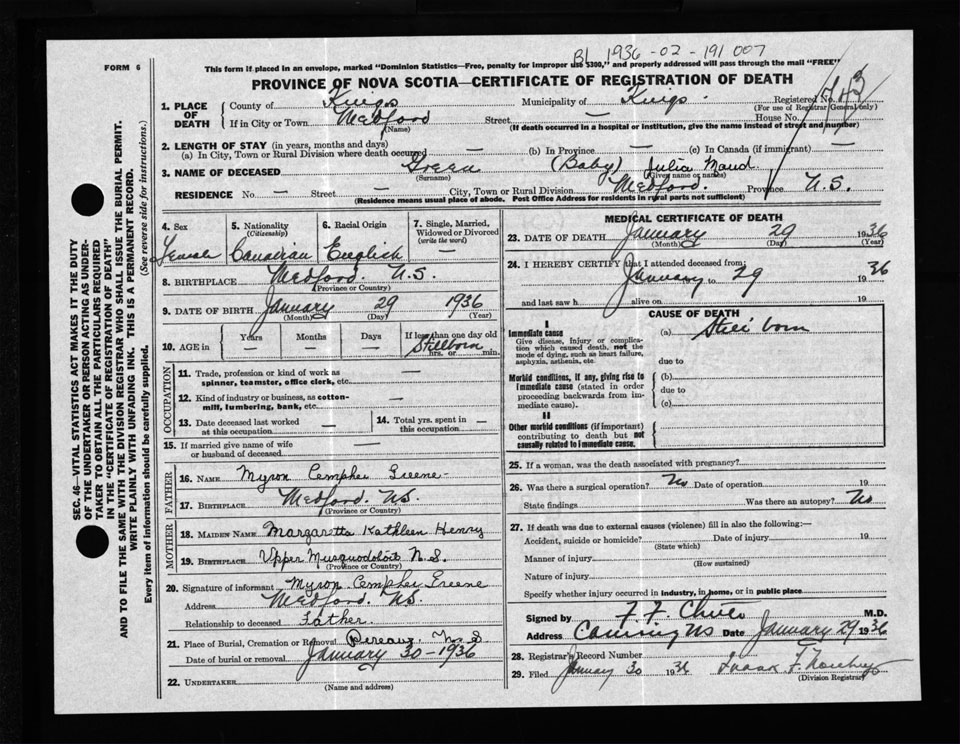 FORM 6
B1 1936-02-191 007
This form if placed in an envelope, marked "Dominion Statistics—Free, penalty for improper use $300," and properly addressed will pass through the mail "FREE"
PROVINCE OF NOVA SCOTIA—CERTIFICATE OF REGISTRATION OF DEATH
1. PLACE OF DEATH
County of Kings Municipality of Kings. Registered No.
(For use of Registrar General only)
If in City or Town Medford Street — House No.
(Name) (If death occurred in a hospital or institution, give the name instead of street and number)
2. LENGTH OF STAY (in years, months and days)
(a) In City, Town or Rural Division where death occurred — (b) In Province — (c) In Canada (if immigrant) —
3. NAME OF DECEASED Green (Baby) Julia Maud
(Surname) (Given name or names)
RESIDENCE No. — Street — City, Town or Rural Division Medford. Province N.S.
(Residence means usual place of abode. Post Office Address for residents in rural parts not sufficient)
4. Sex 5. Nationality 6. Racial Origin 7. Single, Married, Widowed or Divorced
(Citizenship) (write the word)
Female Canadian English
8. BIRTHPLACE Medford. N.S.
(Province or Country)
9. DATE OF BIRTH January 29 1936
(Month) (Day) (Year)
10. AGE in Years Months Days If less than one day old
— — — Stillborn
hrs. or min.
OCCUPATION
11. Trade, profession or kind of work as spinner, teamster, office clerk, etc. —
12. Kind of industry or business, as cotton-mill, lumbering, bank, etc. —
13. Date deceased last worked at this occupation — 14. Total yrs. spent in this occupation —
15. If married give name of wife or husband of deceased —
FATHER
16. NAME Myron Greene
17. BIRTHPLACE Medford. N.S.
(Province or Country)
MOTHER
18. MAIDEN NAME Margaretta Kathleen Henry
19. BIRTHPLACE Upper Musquodoboit N.S.
(Province or Country)
20. Signature of informant Myron Greene
Address Medford. N.S.
Relationship to deceased Father.
21. Place of Burial, Cremation or Removal Pereaux N.S
Date of burial or removal January 30 - 1936
22. UNDERTAKER
(Name and address)
MEDICAL CERTIFICATE OF DEATH
23. DATE OF DEATH January 29 1936
(Month) (Day) (Year)
24. I HEREBY CERTIFY that I attended deceased from:
January to 29 1936
and last saw h alive on 19
CAUSE OF DEATH
I
Immediate cause (a) Still born
Give disease, injury or complication which caused death, not the mode of dying, such as heart failure, asphyxia, asthenia, etc.
due to
Morbid conditions, if any, giving rise to immediate cause (stated in order proceeding backwards from immediate cause).
(b)
due to
(c)
II
Other morbid conditions (if important) contributing to death but not causally related to immediate cause.
25. If a woman, was the death associated with pregnancy?
26. Was there a surgical operation? No Date of operation 19
State findings Was there an autopsy? No
27. If death was due to external causes (violence) fill in also the following:—
Accident, suicide or homicide? Date of injury 19
(State which)
Manner of injury
(How sustained)
Nature of injury
Specify whether injury occurred in industry, in home, or in public place
Signed by M.D.
Address Canning NS Date January 29 1936
28. Registrar's Record Number
29. Filed January 30 1936
(Division Registrar)
SEC. 46—VITAL STATISTICS ACT MAKES IT THE DUTY
OF THE UNDERTAKER OR PERSON ACTING AS UNDERTAKER TO OBTAIN ALL THE PARTICULARS REQUIRED
IN THE "CERTIFICATE OF REGISTRATION OF DEATH"
AND TO FILE THE SAME WITH THE DIVISION REGISTRAR WHO SHALL ISSUE THE BURIAL PERMIT.
WRITE PLAINLY WITH UNFADING INK. THIS IS A PERMANENT RECORD.
Every item of information should be carefully supplied. (See reverse side for instructions.)